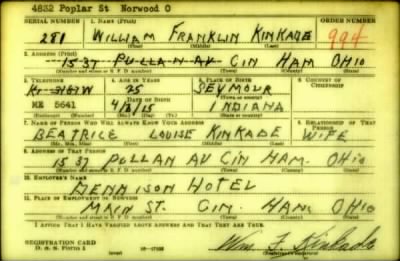 4832 Poplar St Norwood O
SERIAL NUMBER 1. NAME (Print) ORDER NUMBER
281 WILLIAM FRANKLIN KINKADE 994
(First) (Middle) (Last)
2. ADDRESS (Print)
1537 PULLAN AV CIN HAM OHIO
(Number and street or R. F. D. number) (Town) (County) (State)
3. TELEPHONE 4. AGE IN YEARS 5. PLACE OF BIRTH 6. COUNTRY OF CITIZENSHIP
25 SEYMOUR
DATE OF BIRTH (Town or county)
ME 5641 4/3/15 INDIANA
(Exchange) (Number) (Mo.) (Day) (Yr.) (State or country)
7. NAME OF PERSON WHO WILL ALWAYS KNOW YOUR ADDRESS 8. RELATIONSHIP OF THAT PERSON
BEATRICE LOUISE KINKADE WIFE
(Mr., Mrs., Miss) (First) (Middle) (Last)
9. ADDRESS OF THAT PERSON
1537 PULLAN AV CIN HAM. OHIO
(Number and street or R. F. D. number) (Town) (County) (State)
10. EMPLOYER'S NAME
DENNISON HOTEL
11. PLACE OF EMPLOYMENT OR BUSINESS
MAIN ST. CIN. HAM. OHIO
(Number and street or R. F. D. number) (Town) (County) (State)
I AFFIRM THAT I HAVE VERIFIED ABOVE ANSWERS AND THAT THEY ARE TRUE.
REGISTRATION CARD
D. S. S. Form 1 Wm. F. Kinkade
(Registrant's signature)